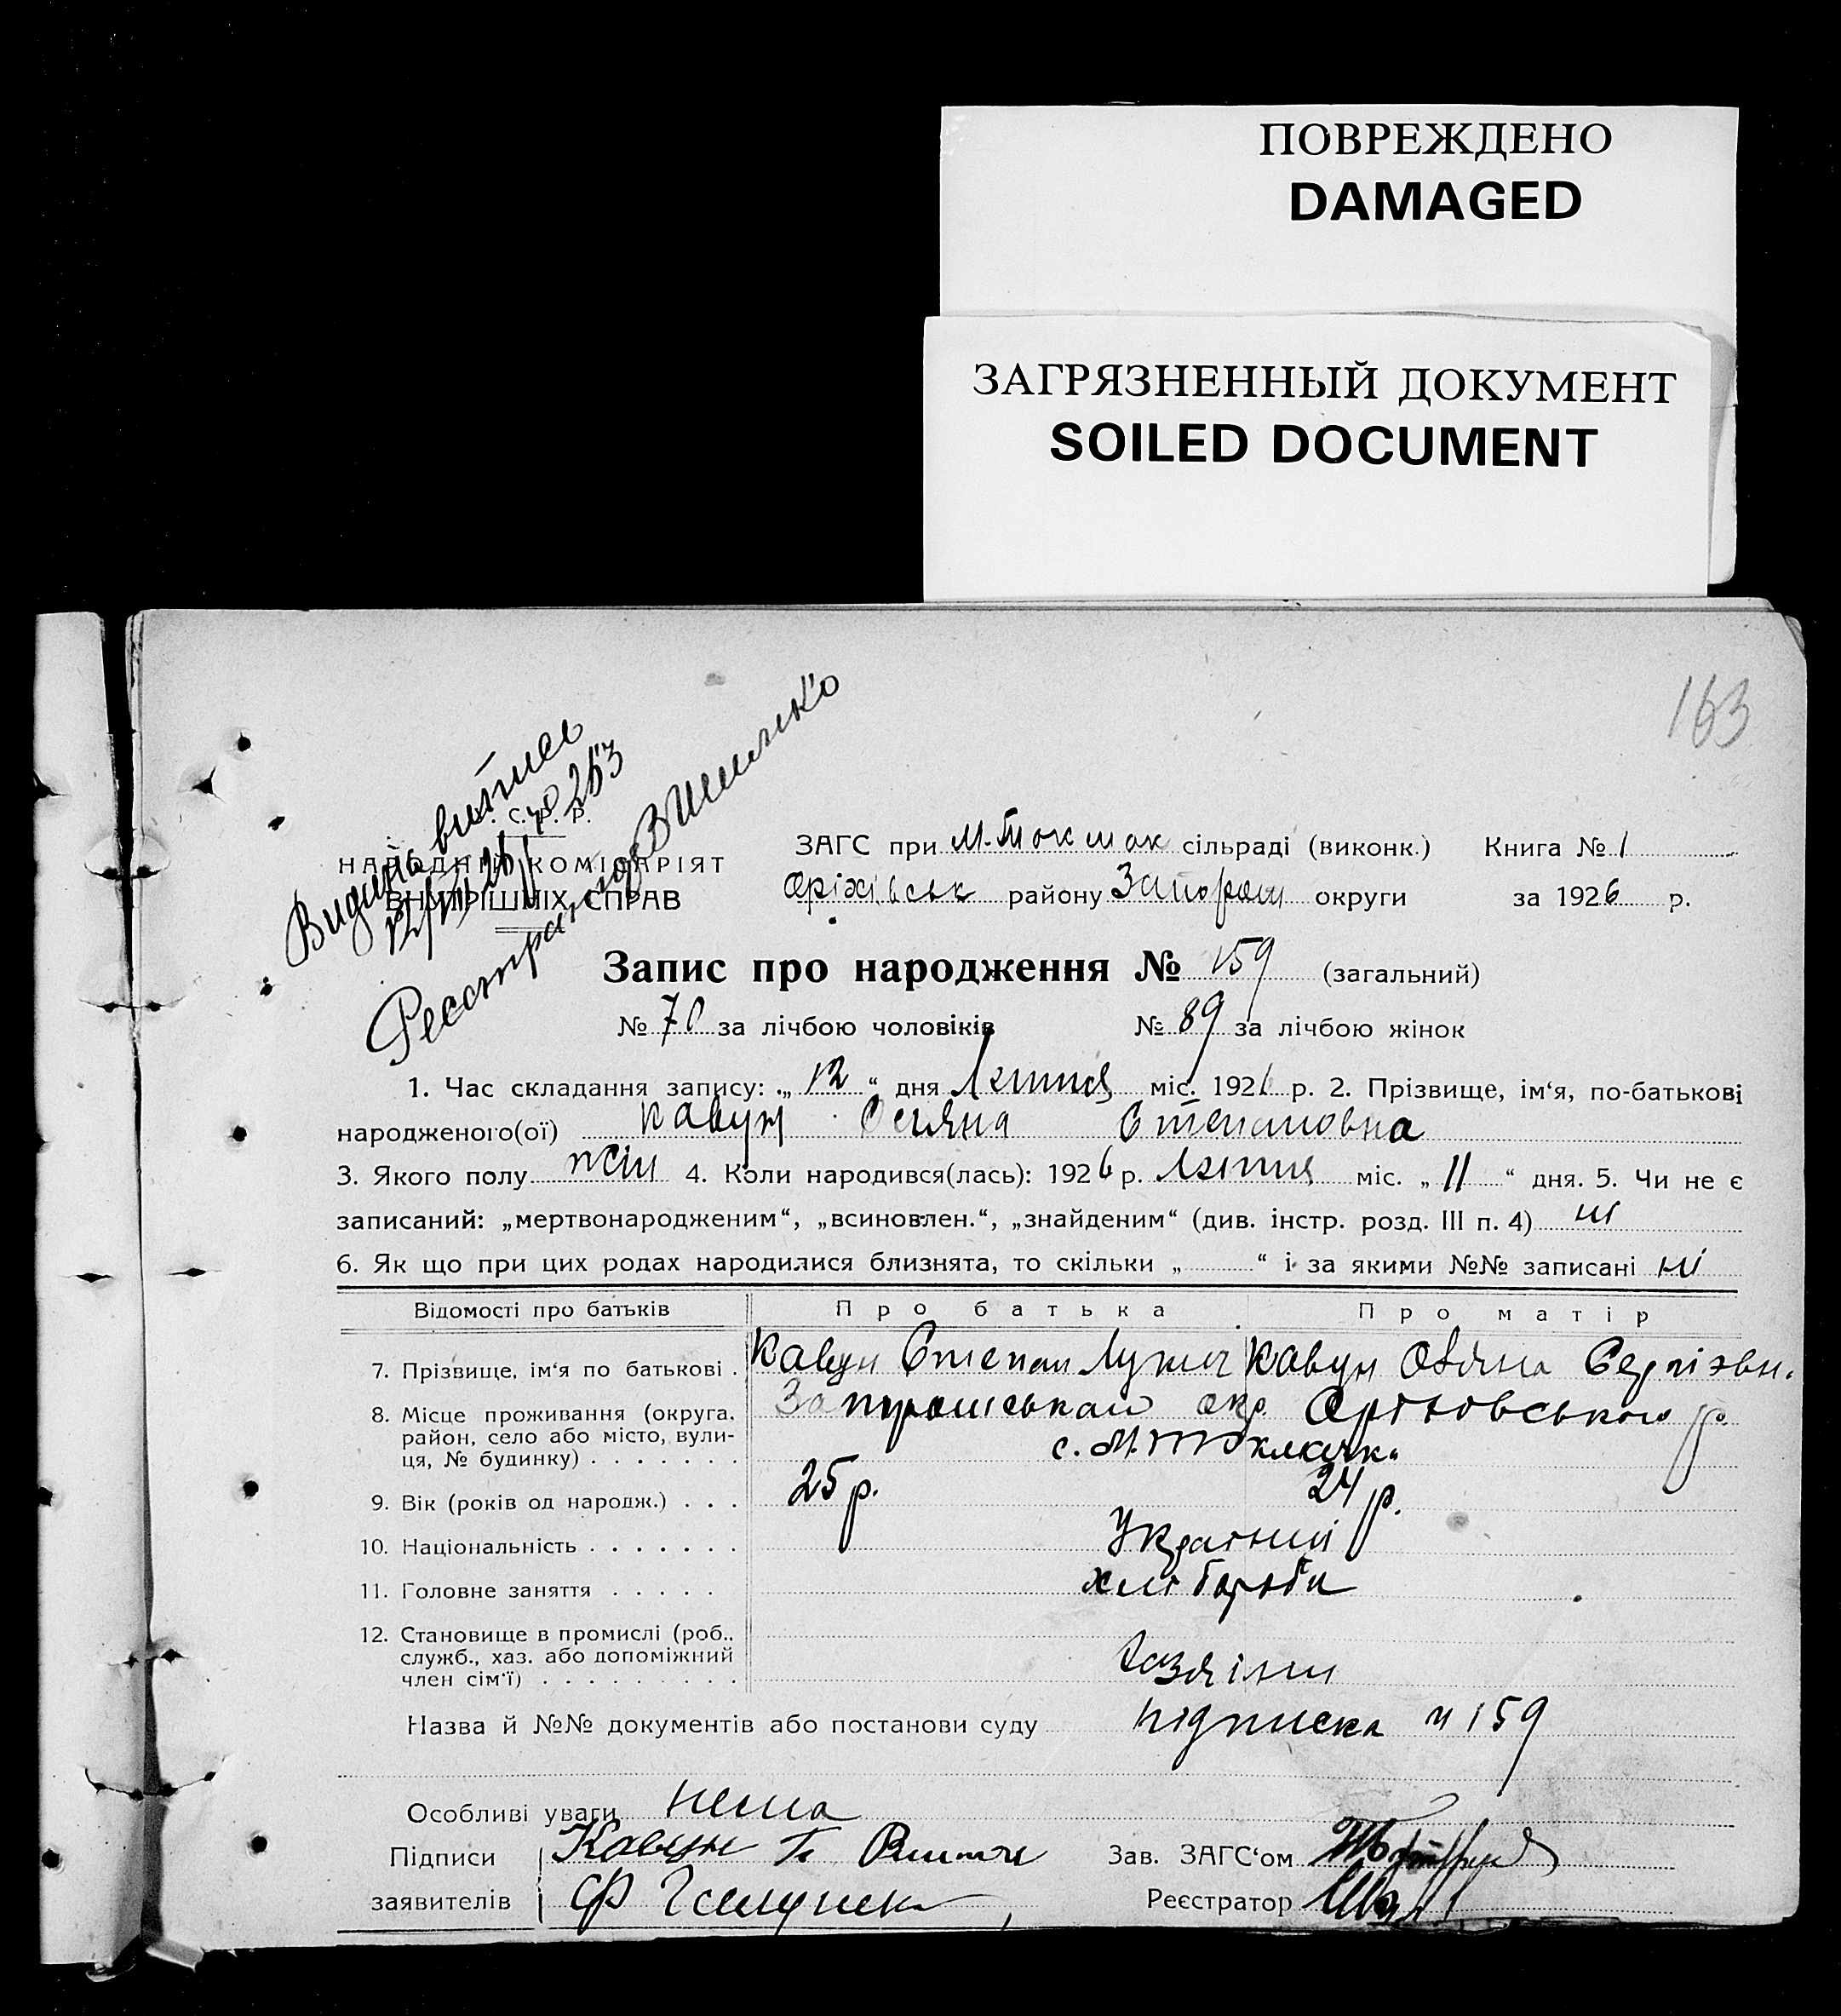 ПОВРЕЖДЕНО
DAMAGED
ЗАГРЯЗНЕННЫЙ ДОКУМЕНТ
SOILED DOCUMENT
163
Видана витпись
253
С. Р. Р.
НАРОДНІЙ КОМІСАРІЯТ
ВНУТРІШНІХ СПРАВ
ЗАГС при М. Токмак сільраді (виконк.) Книга № 1
Оріхівськ району Запоріж округи за 1926 р.
Запис про народження № 159 (загальний)
№ 70 за лічбою чоловіків № 89 за лічбою жінок
1. Час складання запису: „ 12 “ дня Липня міс. 1926 р. 2. Прізвище, ім‘я, по-батькові
народженого(ої) Кавун Степановна
3. Якого полу жін 4. Коли народився(лась): 1926 р. Липня міс. „ 11 “ дня. 5. Чи не є
записаний: „мертвонародженим“, „всиновлен.“, „знайденим“ (див. інстр. розд. III п. 4) ні
6. Як що при цих родах народилися близнята, то скільки „ “ і за якими №№ записані ні
Відомості про батьків Про батька Про матір
7. Прізвище, ім‘я по батькові . Кавун Степан Кавун
8. Місце проживання (округа, район, село або місто, вули-ця, № будинку) . . . . . . .
окр.
р.
с. М.
9. Вік (років од народж.) . . . 25 р. 24 р.
10. Національність . . . . . . .
11. Головне заняття . . . . .
12. Становище в промислі (роб., служб., хаз. або допоміжний член сім‘ї) . . . . . . . . .
Назва й №№ документів або постанови суду підписка 159
Особливі уваги нема
Підписи Кавун Зав. ЗАГС‘ом
заявителів Реєстратор